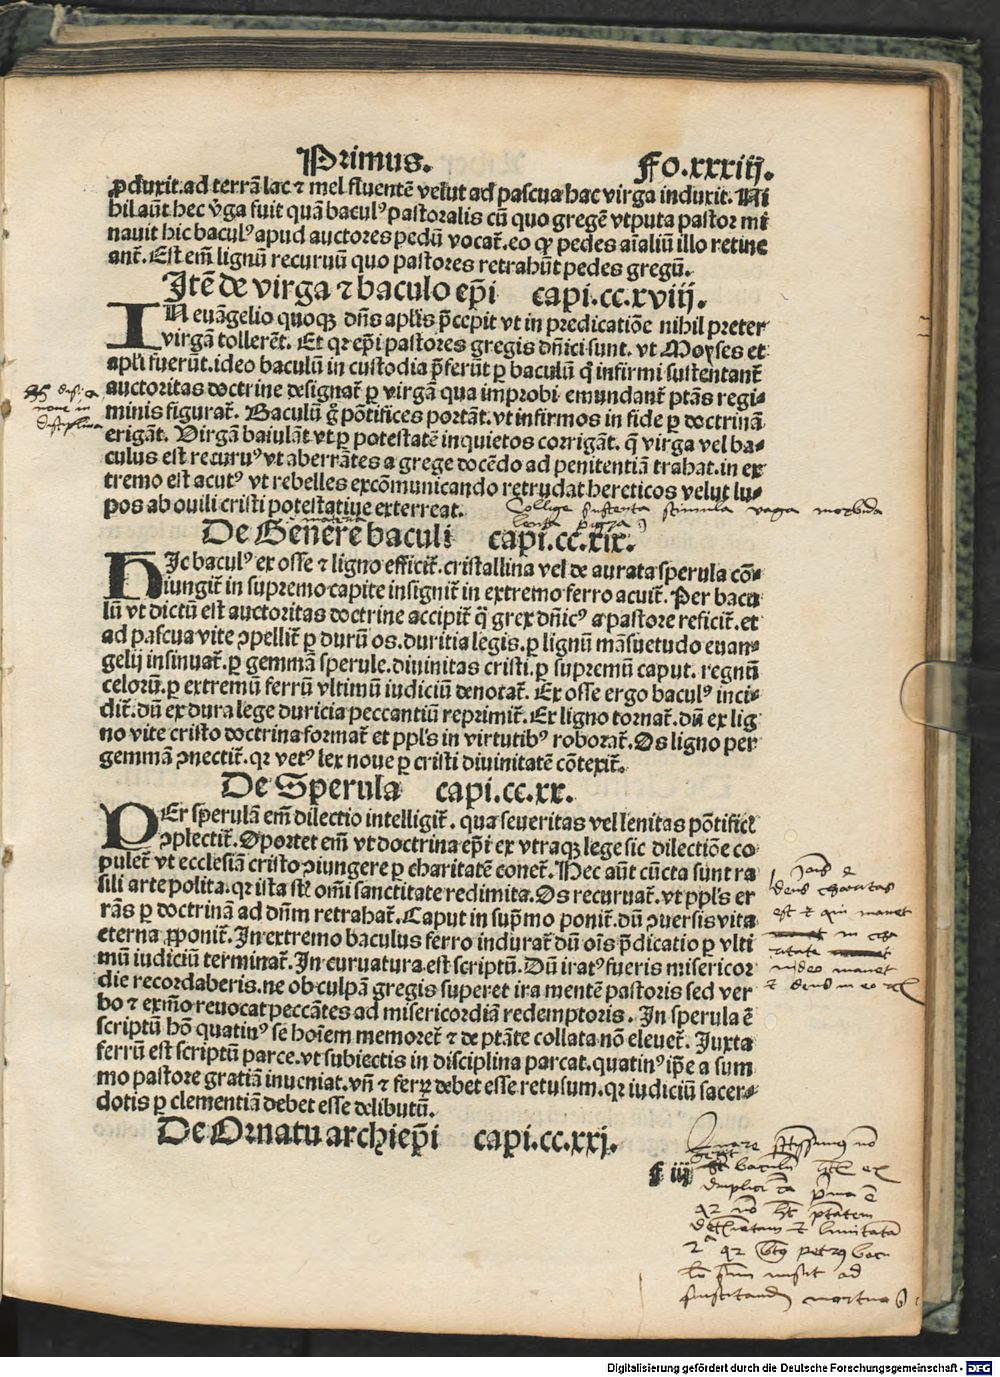 Primus. Fo.xxxiij.
ꝓduxit.ad terrā lac ⁊ mel fluentē velut ad pascua hac virga induxit. Ni
hil aūt hec v̓ga fuit quā baculꝰ pastoralis cū quo gregē vtputa pastor mi
nauit hic baculꝰ apud auctores pedū vocat̄.eo ꝙ pedes aīaliū illo retine
ant̄. Est em̄ lignū recuruū quo pastores retrahūt pedes gregū.
Itē de virga ⁊ baculo ep̄i capi.cc.xviij.
IN euāgelio quoqꝫ dn̄s apl̄is p̄cepit vt in predicatiōe nihil preter
virgā tollerēt. Et qꝛ ep̄i pastores gregis dn̄ici sunt. vt Moyses et
apl̄i fuerūt.ideo baculū in custodia p̄ferūt ꝑ baculū q̄ infirmi sustentant̄
auctoritas doctrine designat̄ ꝑ virgā qua improbi emundant̄ ptās regi⸗
minis figurat̄. Baculū g̊ pōtifices portāt.vt infirmos in fide ꝑ doctrinā
erigāt. Virgā baiulāt vt ꝑ potestatē inquietos corrigāt. q̄ virga vel ba⸗
culus est recuruꝰ vt aberrātes a grege docēdo ad penitentiā trahat.in ex
tremo est acutꝰ vt rebelles excōmunicando retrudat hereticos velut lu⸗
pos ab ouili cristi potestatiue exterreat.
Collige sustenta stimula vaga morbida
lenta
De Genere baculi capi.cc.xix.
HIc baculꝰ ex osse ⁊ ligno efficit̄.cristallina vel de aurata sperula cō⸗
iungit̄ in supremo capite insignit̄ in extremo ferro acuit̄. Per bacu
lū vt dictū est auctoritas doctrine accipit̄ q̄ grex dn̄icꝰ a pastore reficit̄.et
ad pascua vite ꝯpellit̄ ꝑ durū os.duritia legis.ꝑ lignū māsuetudo euan⸗
gelij insinuat̄.ꝑ gemmā sperule.diuinitas cristi.ꝑ supremū caput. regnū
celorū.ꝑ extremū ferrū vltimū iudiciū denotat̄. Ex osse ergo baculꝰ inci⸗
dit̄.dū ex dura lege duricia peccantiū reprimit̄. Ex ligno tornat̄.dū ex lig
no vite cristo doctrina format̄ et ppl̄s in virtutibꝰ roborat̄. Os ligno per
gemmā ꝯnectit̄.qꝛ vetꝰ lex noue ꝑ cristi diuinitatē cōtexit̄.
De Sperula capi.cc.xx.
PEr sperulā em̄ dilectio intelligit̄. qua seueritas vel lenitas pōtificī
ꝯplectit̄. Oportet em̄ vt doctrina ep̄i ex vtraqꝫ lege sic dilectiōe co
pulet̄ vt ecclesiā cristo ꝯiungere ꝑ charitatē conet̄. Hec aūt cūcta sunt ra
sili arte polita.qꝛ ista st̄e om̄i sanctitate redimita. Os recuruat̄. vt ppl̄s er
rās ꝑ doctrinā ad dn̄m retrahat̄. Caput in sup̄mo ponit̄.dū ꝯuersis vita
eterna ꝓponit̄. In extremo baculus ferro indurat̄ dū oīs p̄dicatio ꝑ vlti
mū iudiciū terminat̄. In curuatura est scriptū. Dū iratꝰ fueris misericor
die recordaberis.ne ob culpā gregis superet ira mentē pastoris sed ver
bo ⁊ exm̄o reuocat peccātes ad misericordiā redemptoris. In sperula ē
scriptū hō quatinꝰ se hoīem memoret̄ ⁊ de ptāte collata nō eleuet̄. Iuxta
ferrū est scriptū parce.vt subiectis in disciplina parcat.quatinꝰ ip̄e a sum
mo pastore gratiā inueniat.vn̄ ⁊ ferꝝ debet esse retusum.qꝛ iudiciū sacer⸗
dotis ꝑ clementiā debet esse delibutū.
De Ornatu archiep̄i capi.cc.xxj.
f iij
deus charitas
est ⁊ qui manet
in cha
ritate
in deo manet
⁊ deus in eo
Quare
baculū
duplici
qꝛ
⁊ limitatā
2ᵃ qꝛ petrꝰ bacu
lū suū misit ad
Digitalisierung gefördert durch die Deutsche Forschungsgemeinschaft - DFG